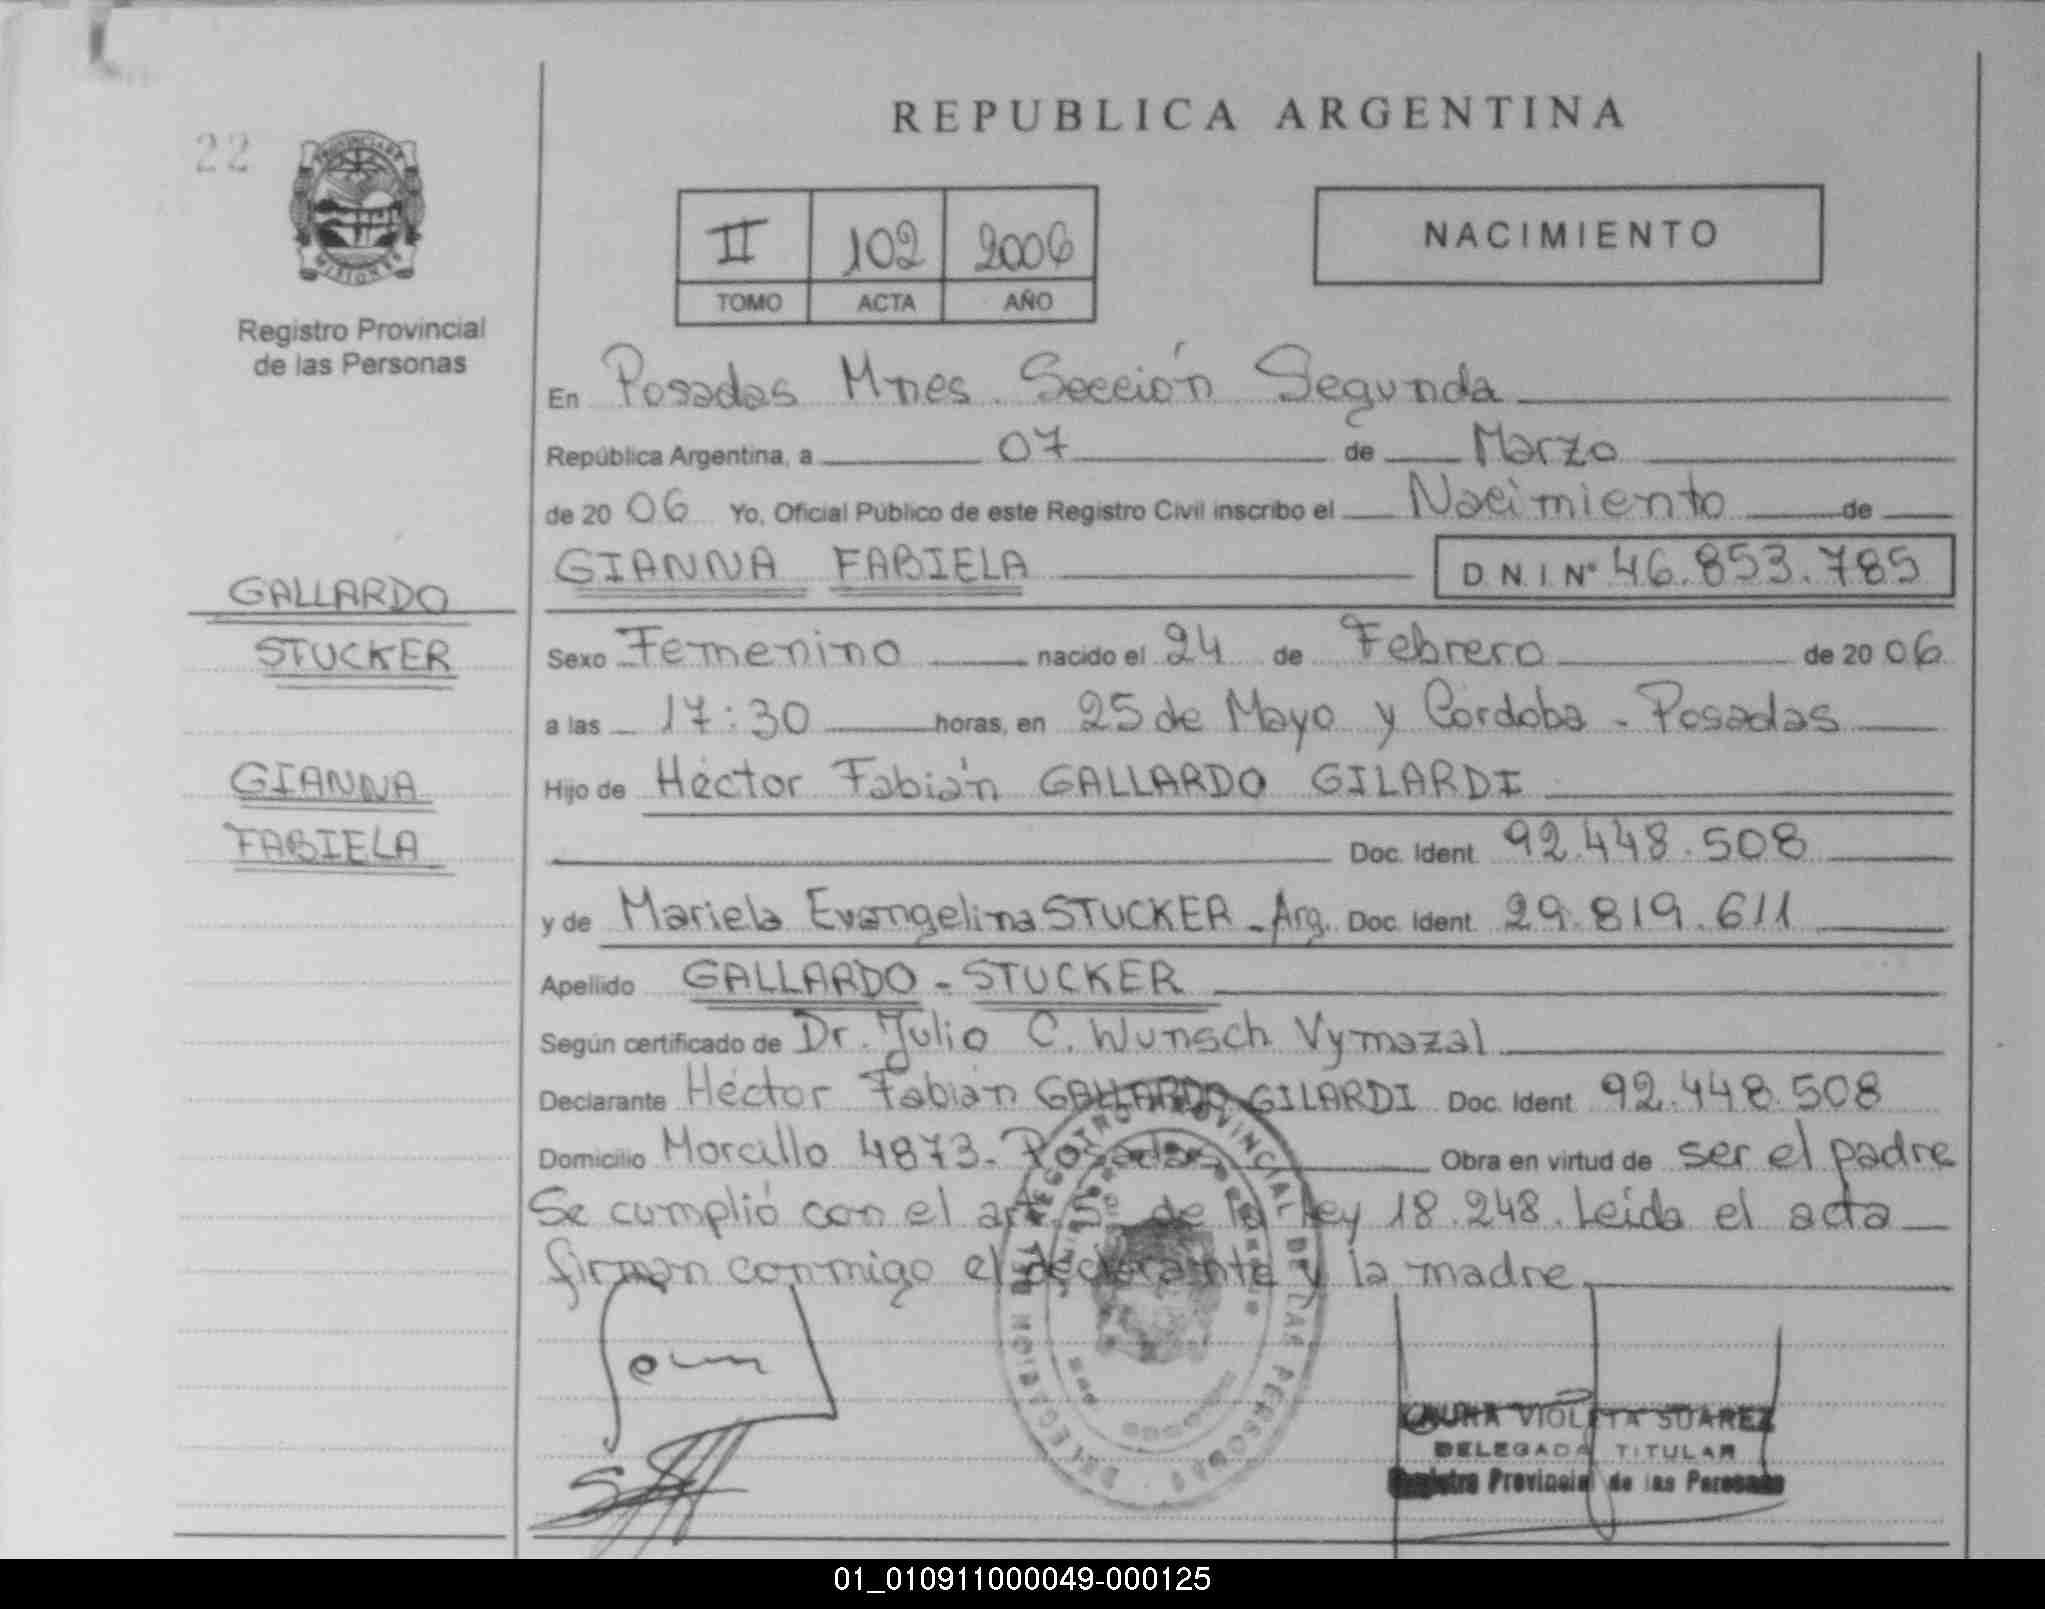 REPUBLICA ARGENTINA
22
PROVINCIA DE
MISIONES
Registro Provincial
de las Personas
II 102 2006
TOMO ACTA AÑO
NACIMIENTO
En Posadas Mnes. Sección Segunda
República Argentina, a 07 de Marzo
de 2006 Yo, Oficial Público de este Registro Civil inscribo el Nacimiento de
GIANNA FABIELA D.N.I. Nº 46.853.785
GALLARDO
STUCKER
GIANNA
FABIELA
Sexo Femenino nacido el 24 de Febrero de 2006
a las 17:30 horas, en 25 de Mayo y Córdoba - Posadas
Hijo de Héctor Fabián GALLARDO GILARDI
Doc. Ident. 92.448.508
y de Mariela Evangelina STUCKER - Arg. Doc. Ident. 29.819.611
Apellido GALLARDO - STUCKER
Según certificado de Dr. Julio C. Wunsch Vymazal
Declarante Héctor Fabián GALLARDO GILARDI Doc. Ident. 92.448.508
Domicilio Morcillo 4873 - Posadas Obra en virtud de ser el padre
Se cumplió con el art. 5º de la ley 18.248. Leída el acta
firman conmigo el declarante y la madre
REGISTRO PROVINCIAL DE LAS PERSONAS
LAURA VIOLETA SUAREZ
DELEGADA TITULAR
Registro Provincial de las Personas
01_010911000049-000125